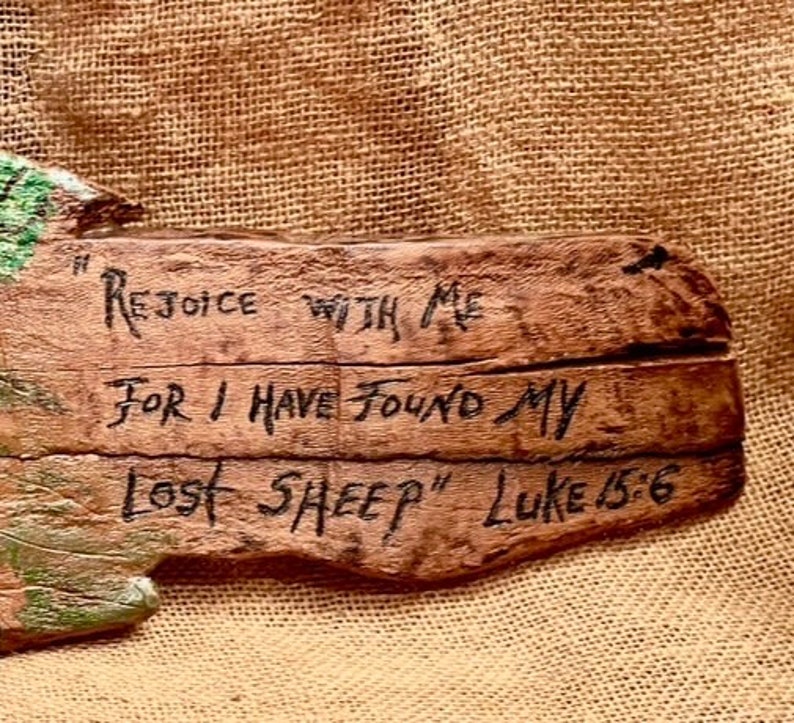 "Rejoice with Me
For I Have Found My
Lost Sheep" Luke 15:6